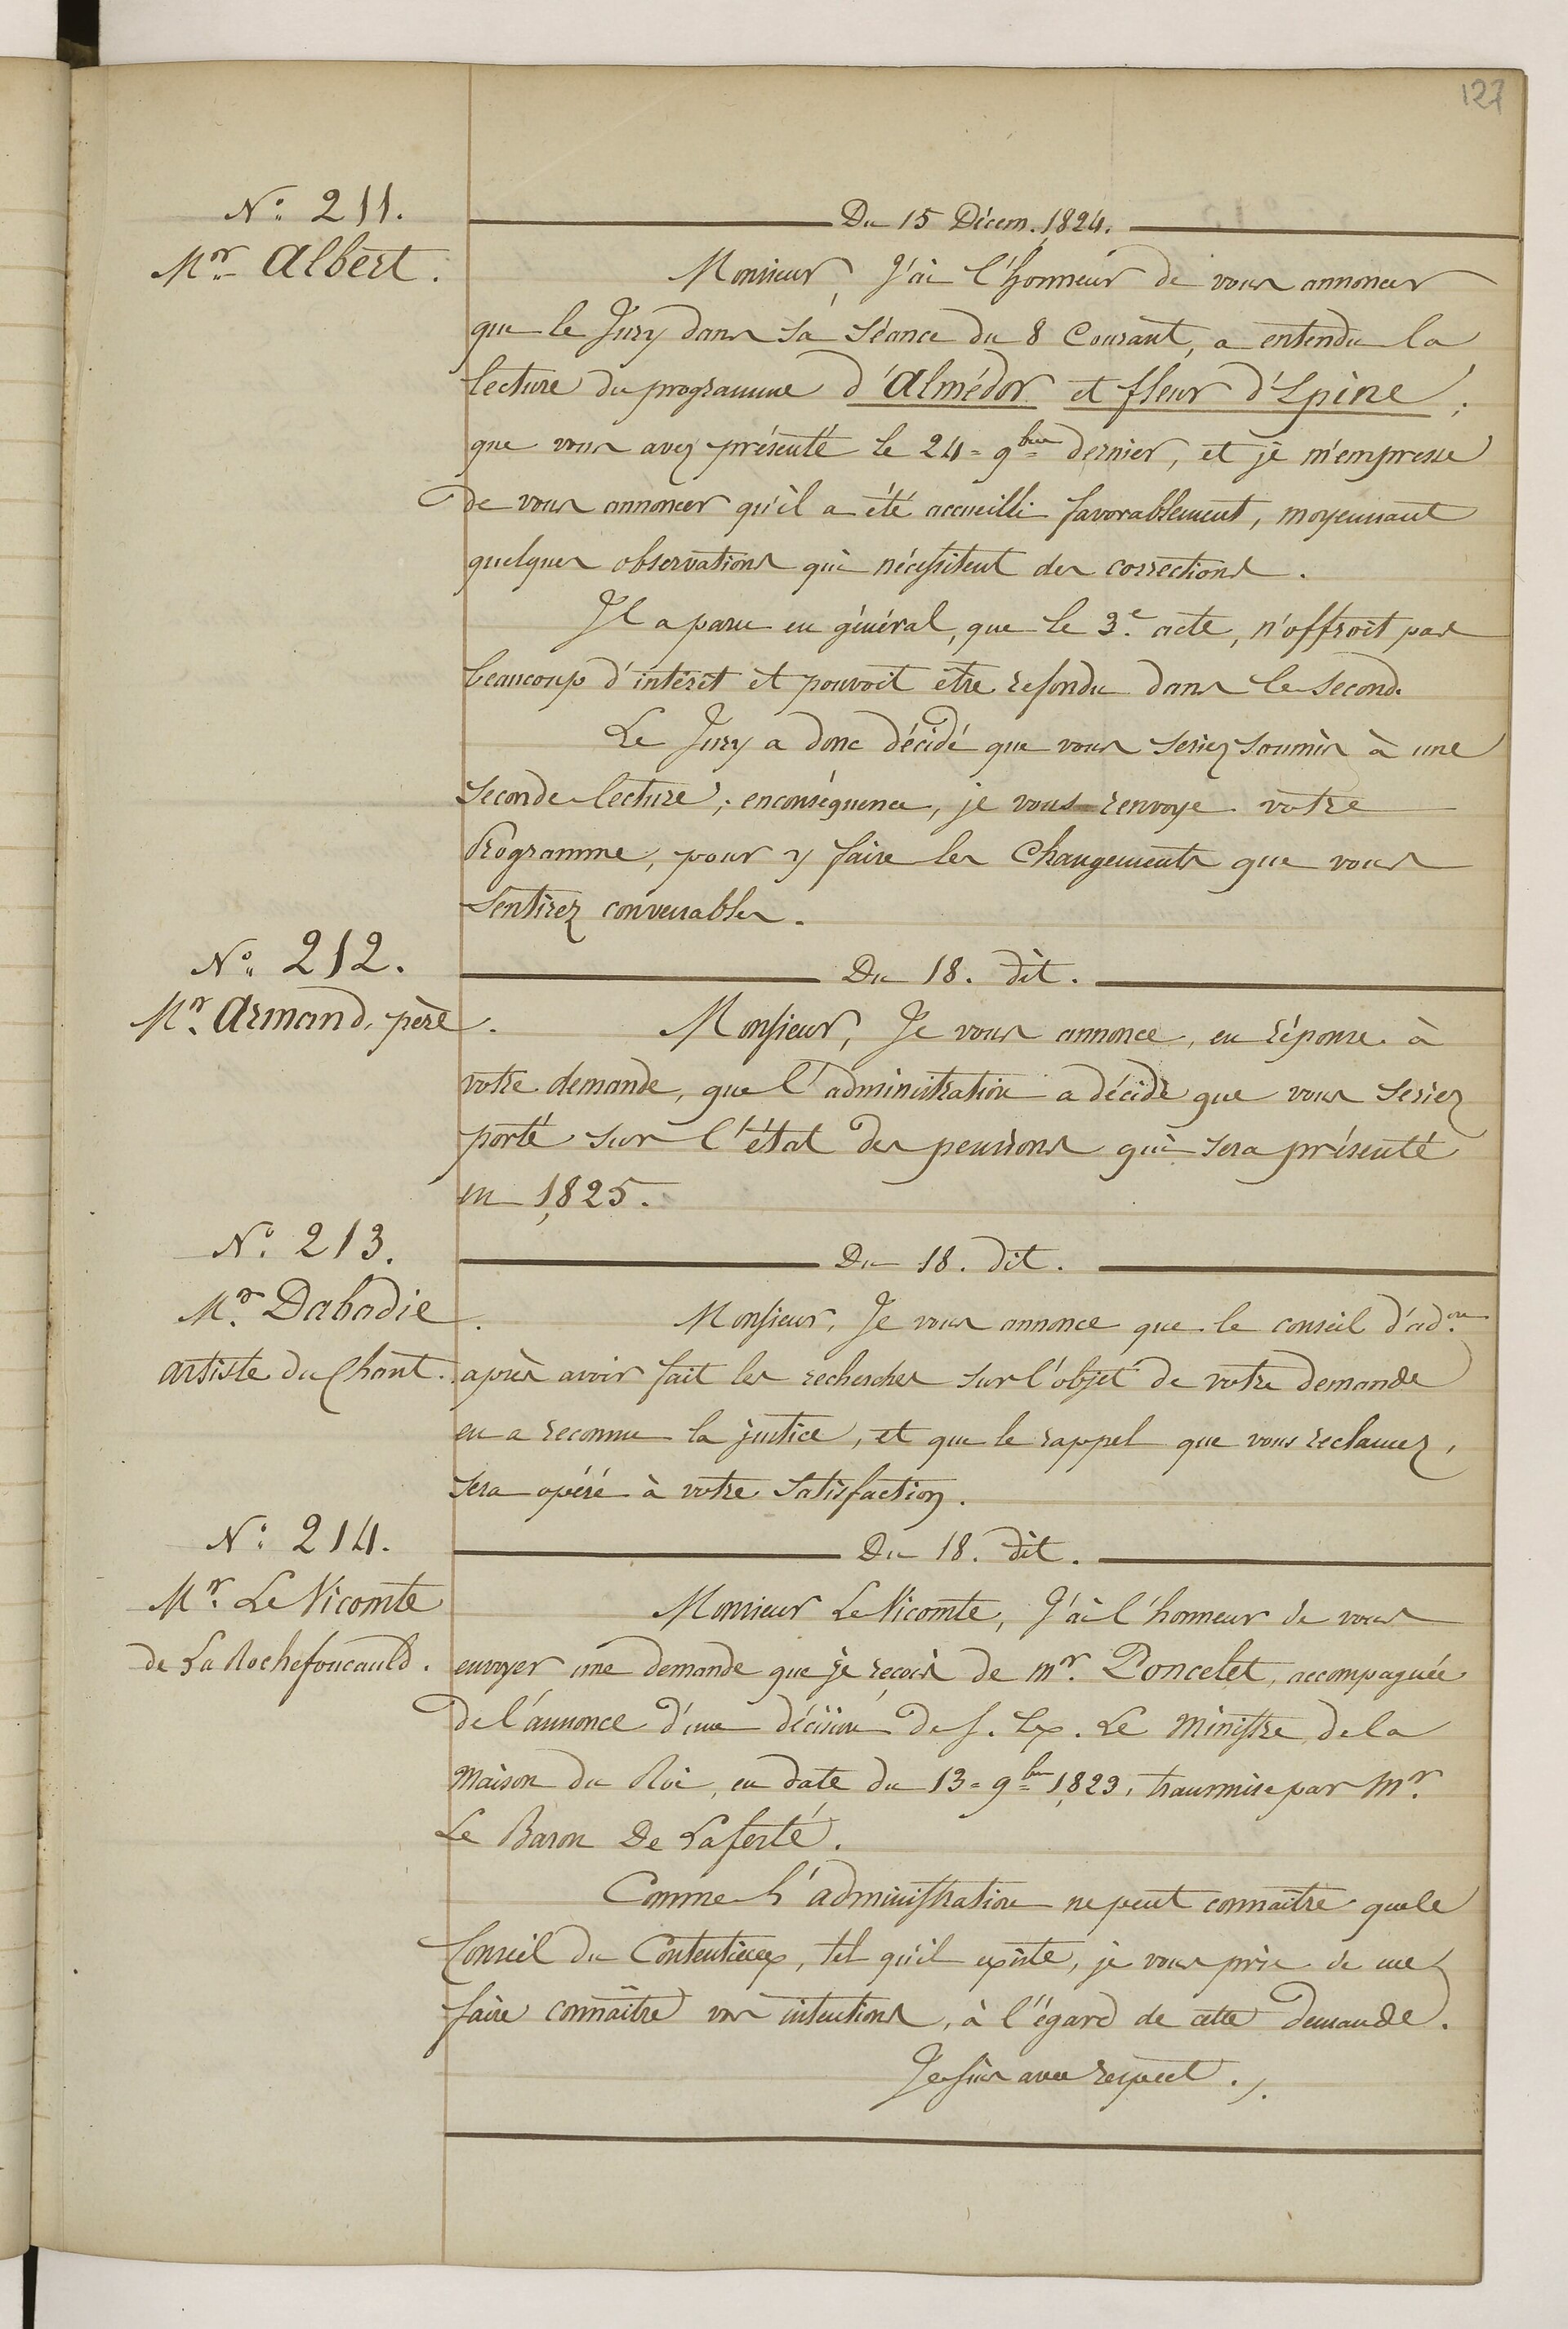 127
N.° 211.
Du 15 Décem. 1824.
Mr. Albert.
Monsieur, J'ai l'honneur de vous annoncer
que le Jury dans sa séance du 8 Courant, a entendu la
lecture du programme d'Almédor et fleur d'Epine,
que vous avez présenté le 24 = 9bre dernier, et je m'empresse
de vous annoncer qu'il a été accueilli favorablement, moyennant
quelques observations qui nécessitent des corrections.
Il a paru en général, que le 3.e acte, n'offroit pas
beaucoup d'intérêt et pouvoit être refondu dans le second.
Le Jury a donc décidé que vous seriez soumis à une
seconde lecture; enconséquence, je vous renvoye votre
Programme, pour y faire les Changements que vous
sentirez convenables.
N.° 212.
Du 18. dit.
Mr. Armand, père.
Monsieur, Je vous annonce, en réponse à
votre demande, que l'administration a décidé que vous seriez
porté sur l'état des pensions qui sera présenté
en 1825.
N.° 213.
Du 18. dit.
Mr. Dabadie.
artiste du Chant.
Monsieur, Je vous annonce que le conseil d'ad.on
après avoir fait les recherches sur l'objet de votre demande
en a reconnu la justice, et que le rappel que vous reclamez,
sera opéré à votre satisfaction.
N.° 214.
Du 18. dit.
Mr. Le Vicomte
de La Rochefoucauld.
Monsieur Le Vicomte, J'ai l'honneur de vous
envoyer une demande que je reçois de mr. Poncelet, accompagnée
de l'annonce d'une décision de S. Ex. Le Ministre de la
maison du Roi, en date du 13 = 9bre 1823, transmise par Mr.
Le Baron De Laferté.
Comme L'administration ne peut connaitre que le
Conseil du Contentieux, tel qu'il existe, je vous prie de me
faire connaître vos intentions, à l'égard de cette demande.
Je suis avec respect ./.